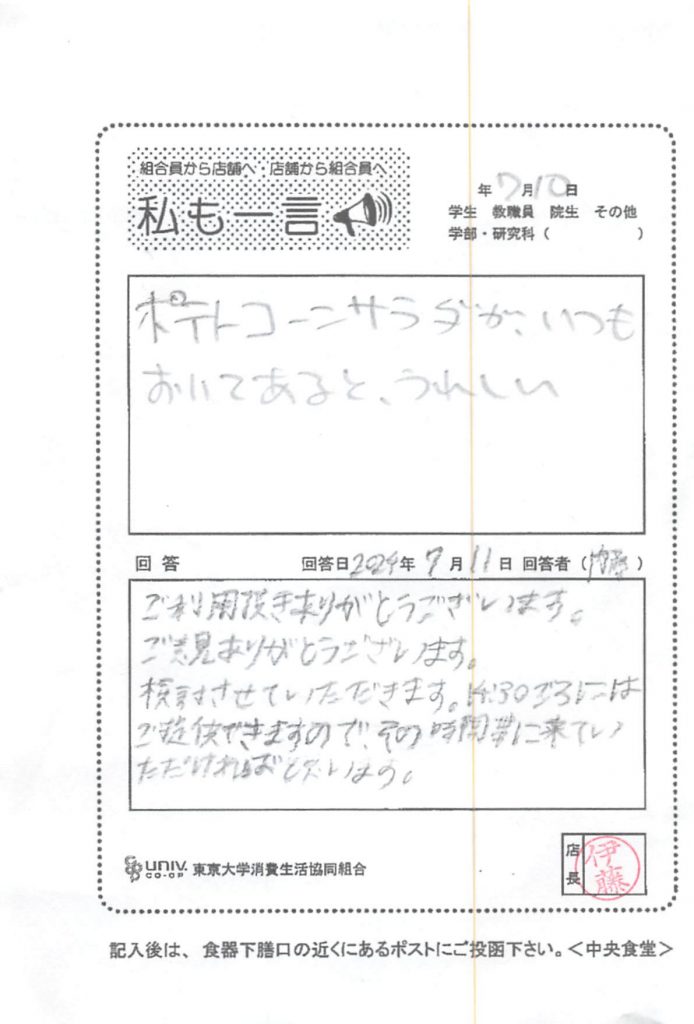 組合員から店舗へ 店舗から組合員へ
私も一言
年 7月10日
学生 教職員 院生 その他
学部・研究科（ ）
ポテトコーンサラダが、いつも
おいてあると、うれしい
回答 回答日2024年 7月11日 回答者（ ）
ご利用頂きありがとうございます。
ご意見ありがとうございます。
検討させていただきます。14:30ごろには
ご提供できますので、その時間帯に来てい
ただければと思います。
UNIV. CO-OP 東京大学消費生活協同組合
店長 伊藤
記入後は、食器下膳口の近くにあるポストにご投函下さい。＜中央食堂＞